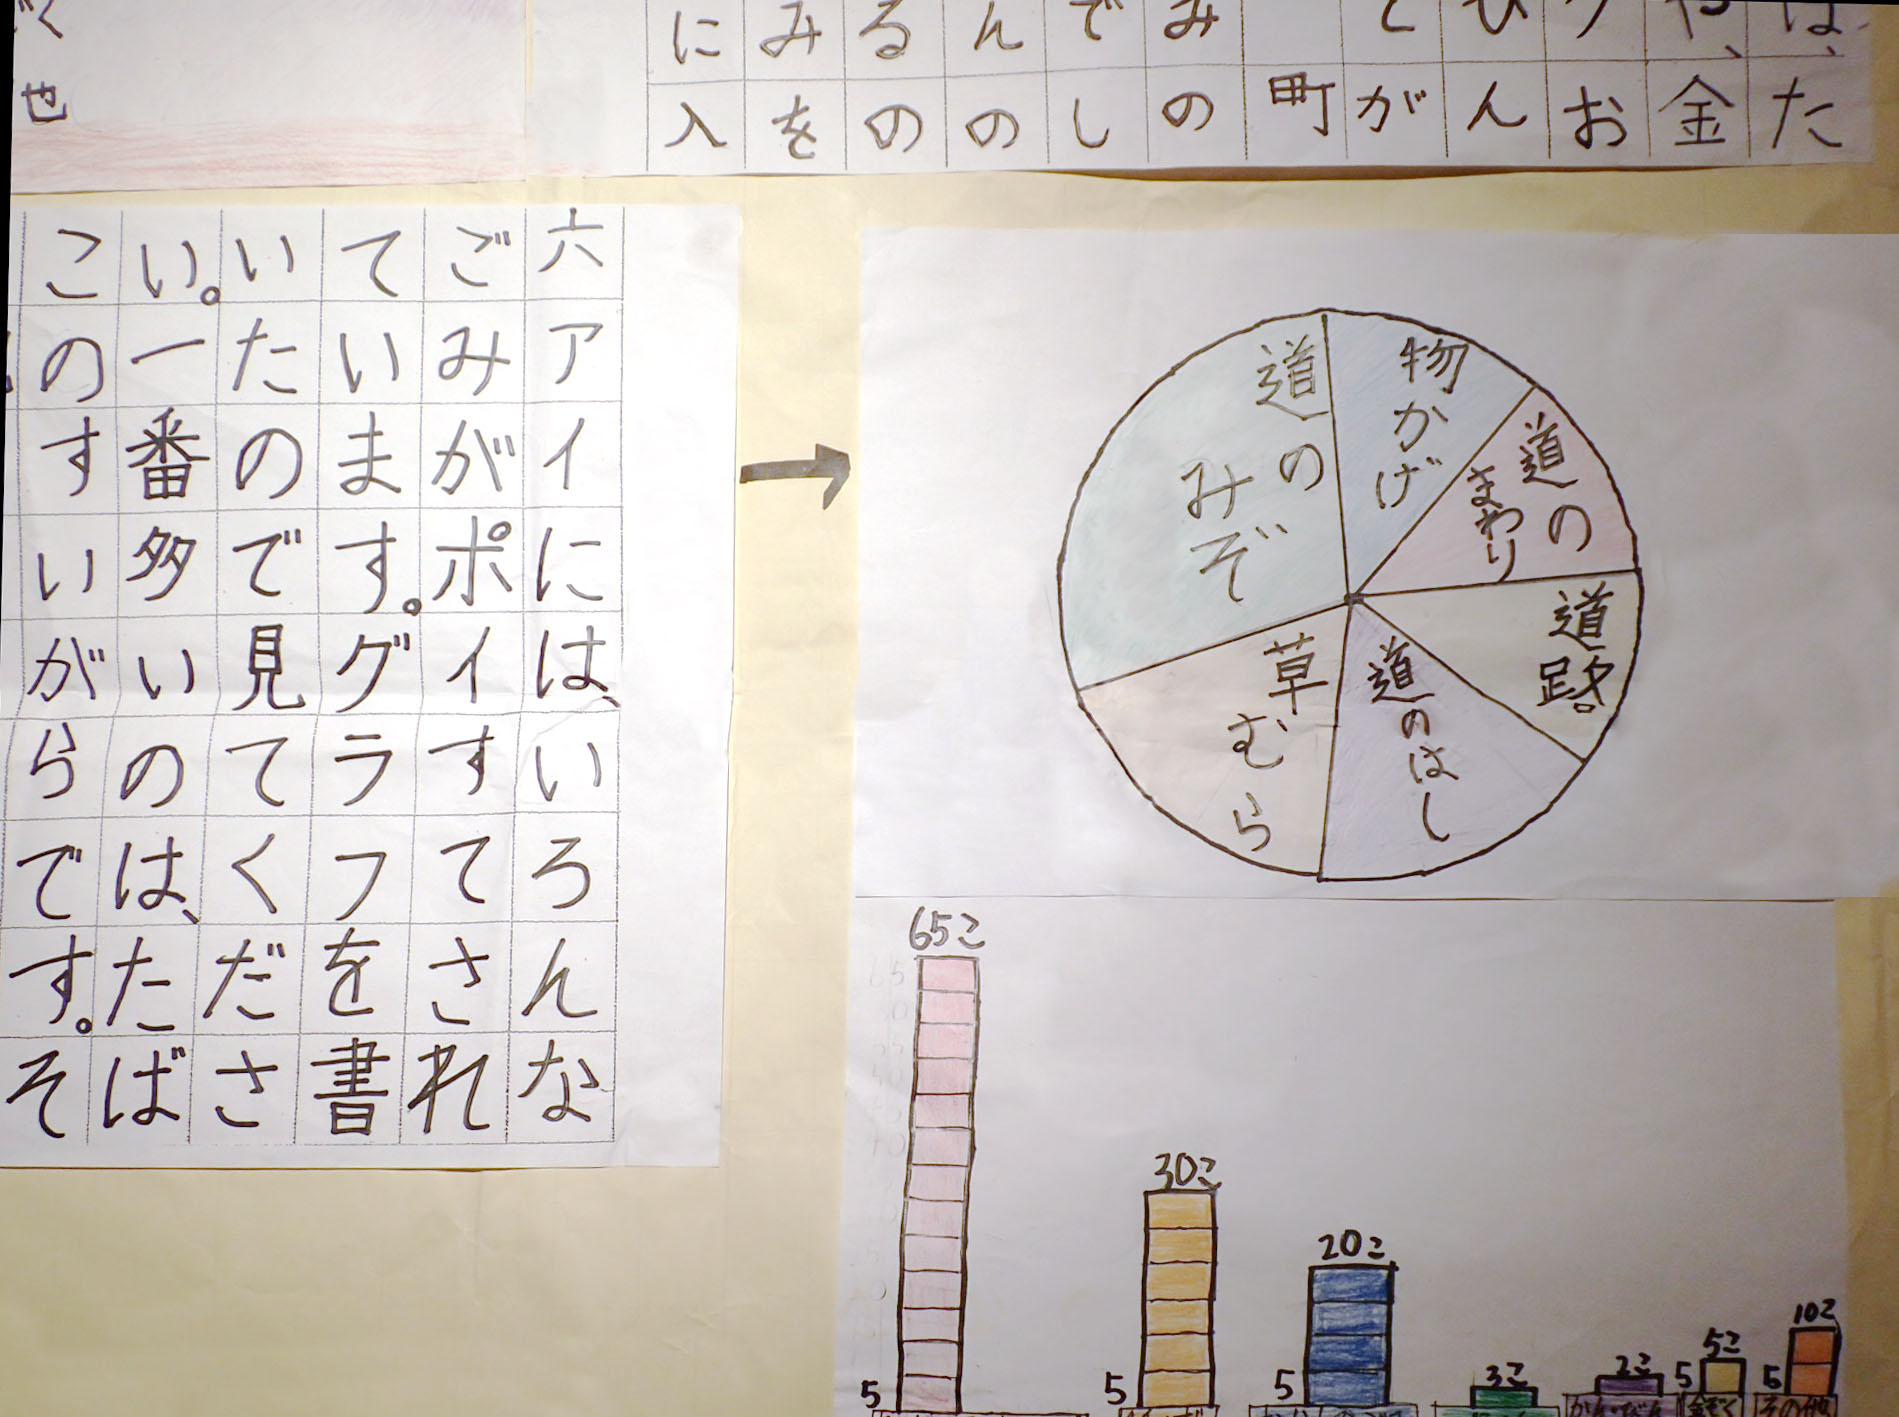 は、た
や、金
お
ん
が
町
みの
でし
んの
るの
みを
に入
く
也
六アイには、いろんな
ごみがポイすてされ
ています。グラフを書
いたので見てくださ
い。一番多いのは、たば
このすいがらです。そ
物かげ
道の
まわり
道路。
道のはし
草むら
道の
みぞ
65こ
30こ
20こ
3こ
2こ
5こ
10こ
5
5
5
5
5
金ぞく
その他